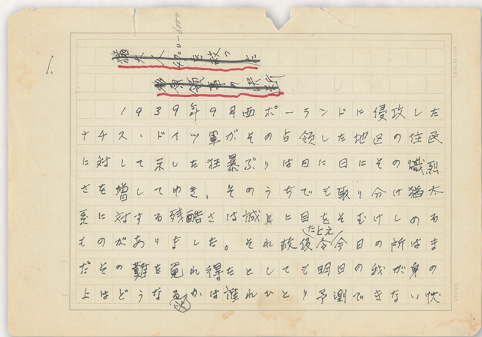 1.
4000-6000
猶太人4000を救った
領事の決断
1939年9月西ポーランドに侵攻した
ナチス・ドイツ軍がその占領した地区の住民
に対して示した狂暴ぶりは日に日にその熾烈
さを増してゆき、そのうちでも取り分け猶太
系に対する残酷さは誠に目をそむけしめる
ものがありました。それ故後令今日の所はま
たとえ
だその難を逃れ得たとしても明日の我が身の
上はどうなるかは誰れひとり予測できない状